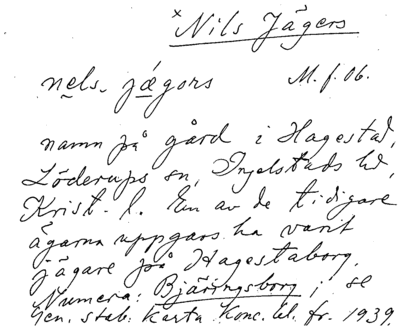 × Nils Jägers
nels- jǽgors M. f. 06.
namn på gård i Hagestad,
Löderups sn, Ingelstads hd,
Krist. l. En av de tidigare
ägarna uppgavs ha varit
jägare på Hagestaborg.
Numera: Bjäringsborg; se
Gen. stab. karta. Konc. bl. fr. 1939.